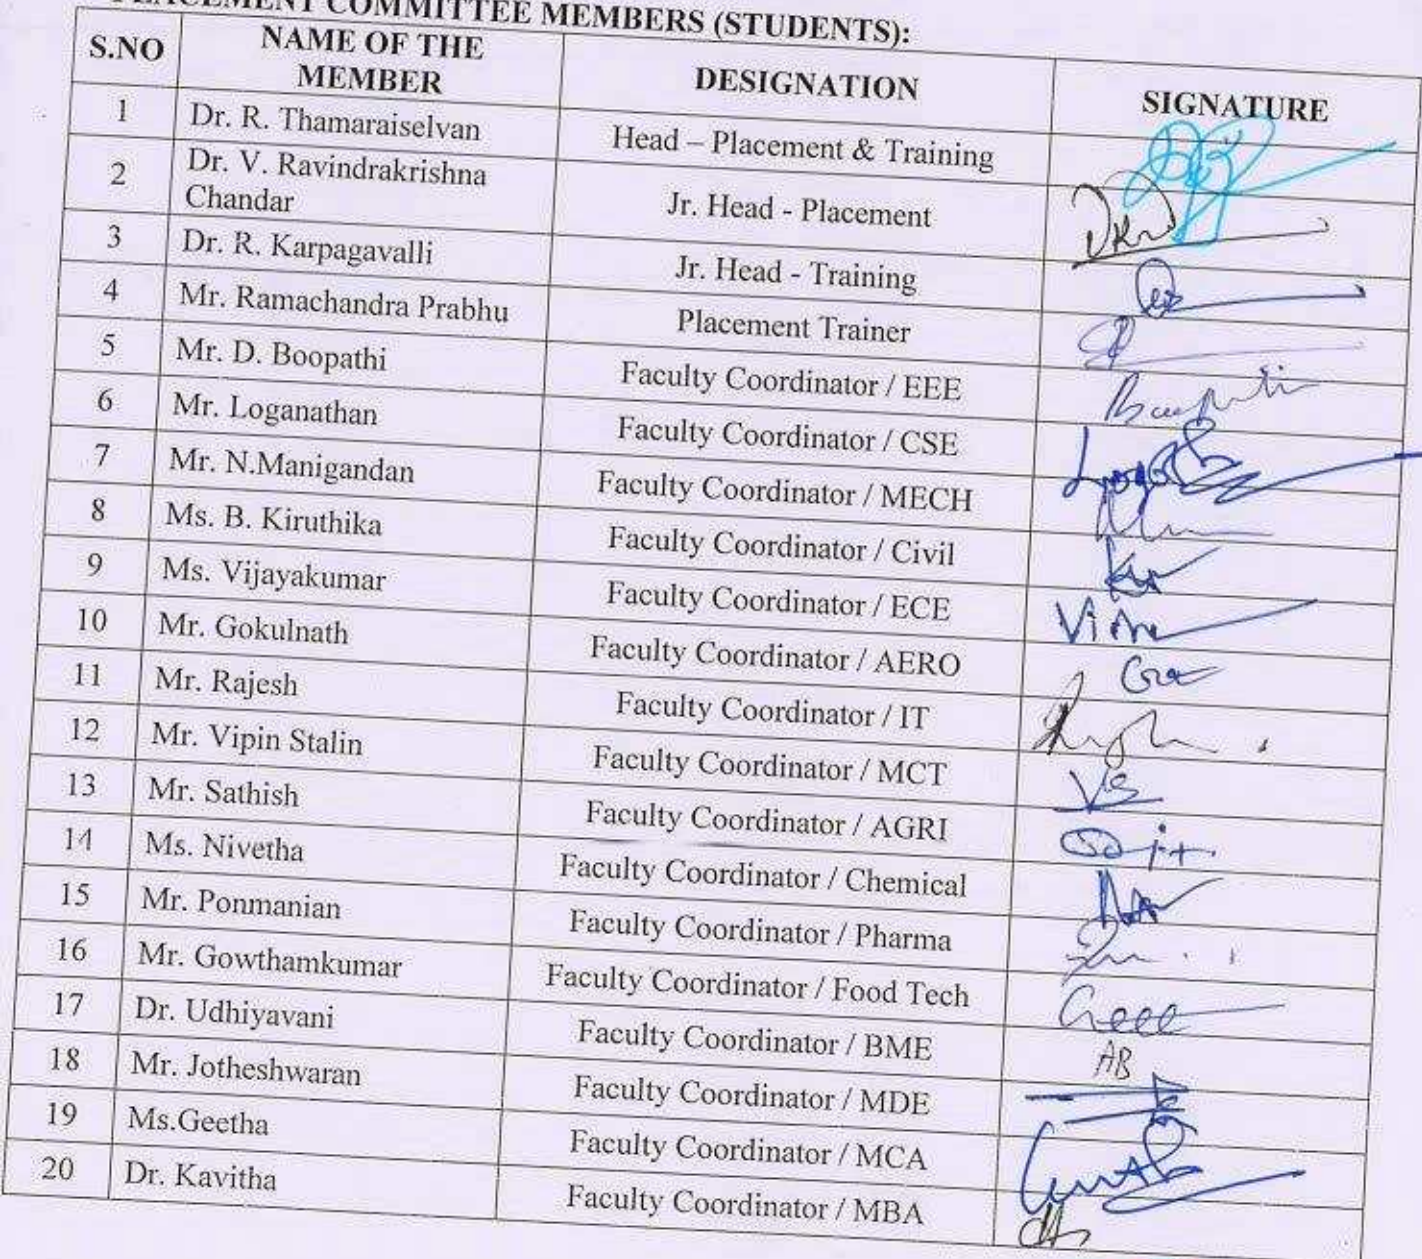 PLACEMENT COMMITTEE MEMBERS (STUDENTS):
S.NO NAME OF THE MEMBER DESIGNATION SIGNATURE
1 Dr. R. Thamaraiselvan Head – Placement & Training
2 Dr. V. Ravindrakrishna Chandar Jr. Head - Placement
3 Dr. R. Karpagavalli Jr. Head - Training
4 Mr. Ramachandra Prabhu Placement Trainer
5 Mr. D. Boopathi Faculty Coordinator / EEE
6 Mr. Loganathan Faculty Coordinator / CSE
7 Mr. N.Manigandan Faculty Coordinator / MECH
8 Ms. B. Kiruthika Faculty Coordinator / Civil
9 Ms. Vijayakumar Faculty Coordinator / ECE
10 Mr. Gokulnath Faculty Coordinator / AERO
11 Mr. Rajesh Faculty Coordinator / IT
12 Mr. Vipin Stalin Faculty Coordinator / MCT
13 Mr. Sathish Faculty Coordinator / AGRI
14 Ms. Nivetha Faculty Coordinator / Chemical
15 Mr. Ponmanian Faculty Coordinator / Pharma
16 Mr. Gowthamkumar Faculty Coordinator / Food Tech
17 Dr. Udhiyavani Faculty Coordinator / BME AB
18 Mr. Jotheshwaran Faculty Coordinator / MDE
19 Ms.Geetha Faculty Coordinator / MCA
20 Dr. Kavitha Faculty Coordinator / MBA